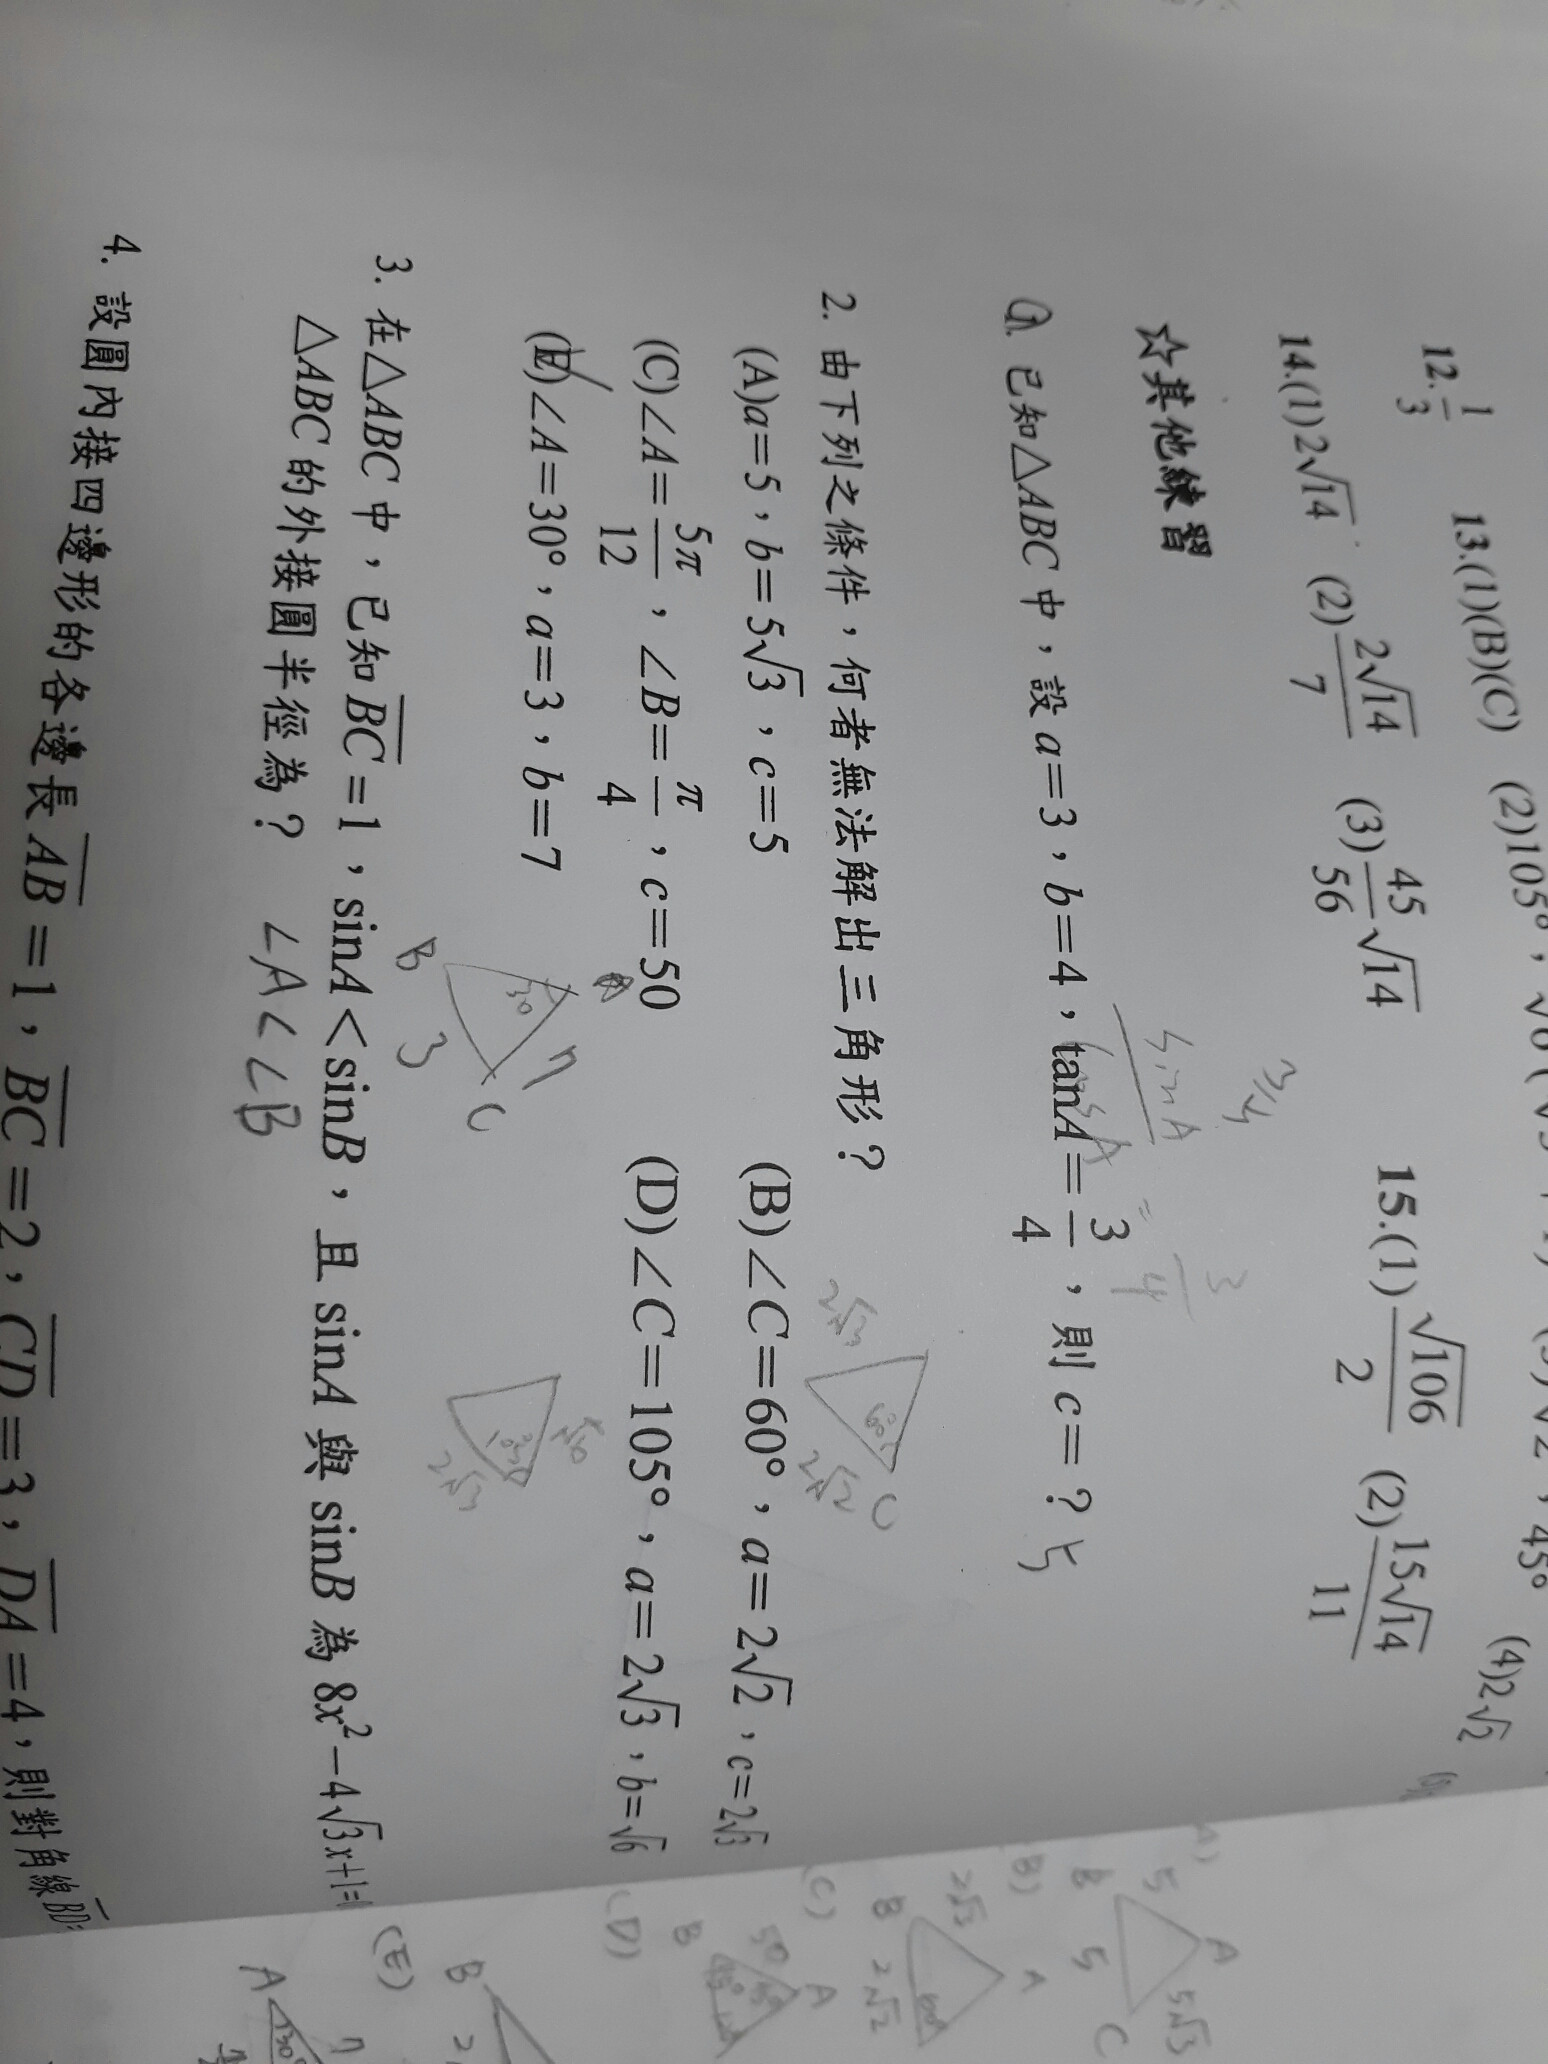 12. 1/3 13.(1)(B)(C) (2)105°, (4)2√2
14.(1)2√14 (2)2√14/7 (3)45/56√14 15.(1)√106/2 (2)15√14/11
☆其他練習
1. 已知△ABC中，設a=3，b=4，tanA=3/4，則c=？ 5
sinA
3/4
2. 由下列之條件，何者無法解出三角形？
(A)a=5，b=5√3，c=5 (B)∠C=60°，a=2√2，c=2√3
(C)∠A=5π/12，∠B=π/4，c=50 (D)∠C=105°，a=2√3，b=√6
(E)∠A=30°，a=3，b=7
2√3 60° 2√2 C
B 30 7 3 C
2√3
3. 在△ABC中，已知BC=1，sinA<sinB，且sinA與sinB為8x²−4√3x+1=
△ABC的外接圓半徑為？ ∠A<∠B
4. 設圓內接四邊形的各邊長AB=1，BC=2，CD=3，DA=4，則對角線BD=
A 5 B 5 5√3 C
B) 2√3 B 2√2 A 60°
(C) 50 B A
(D) B
(E) A 30° 7